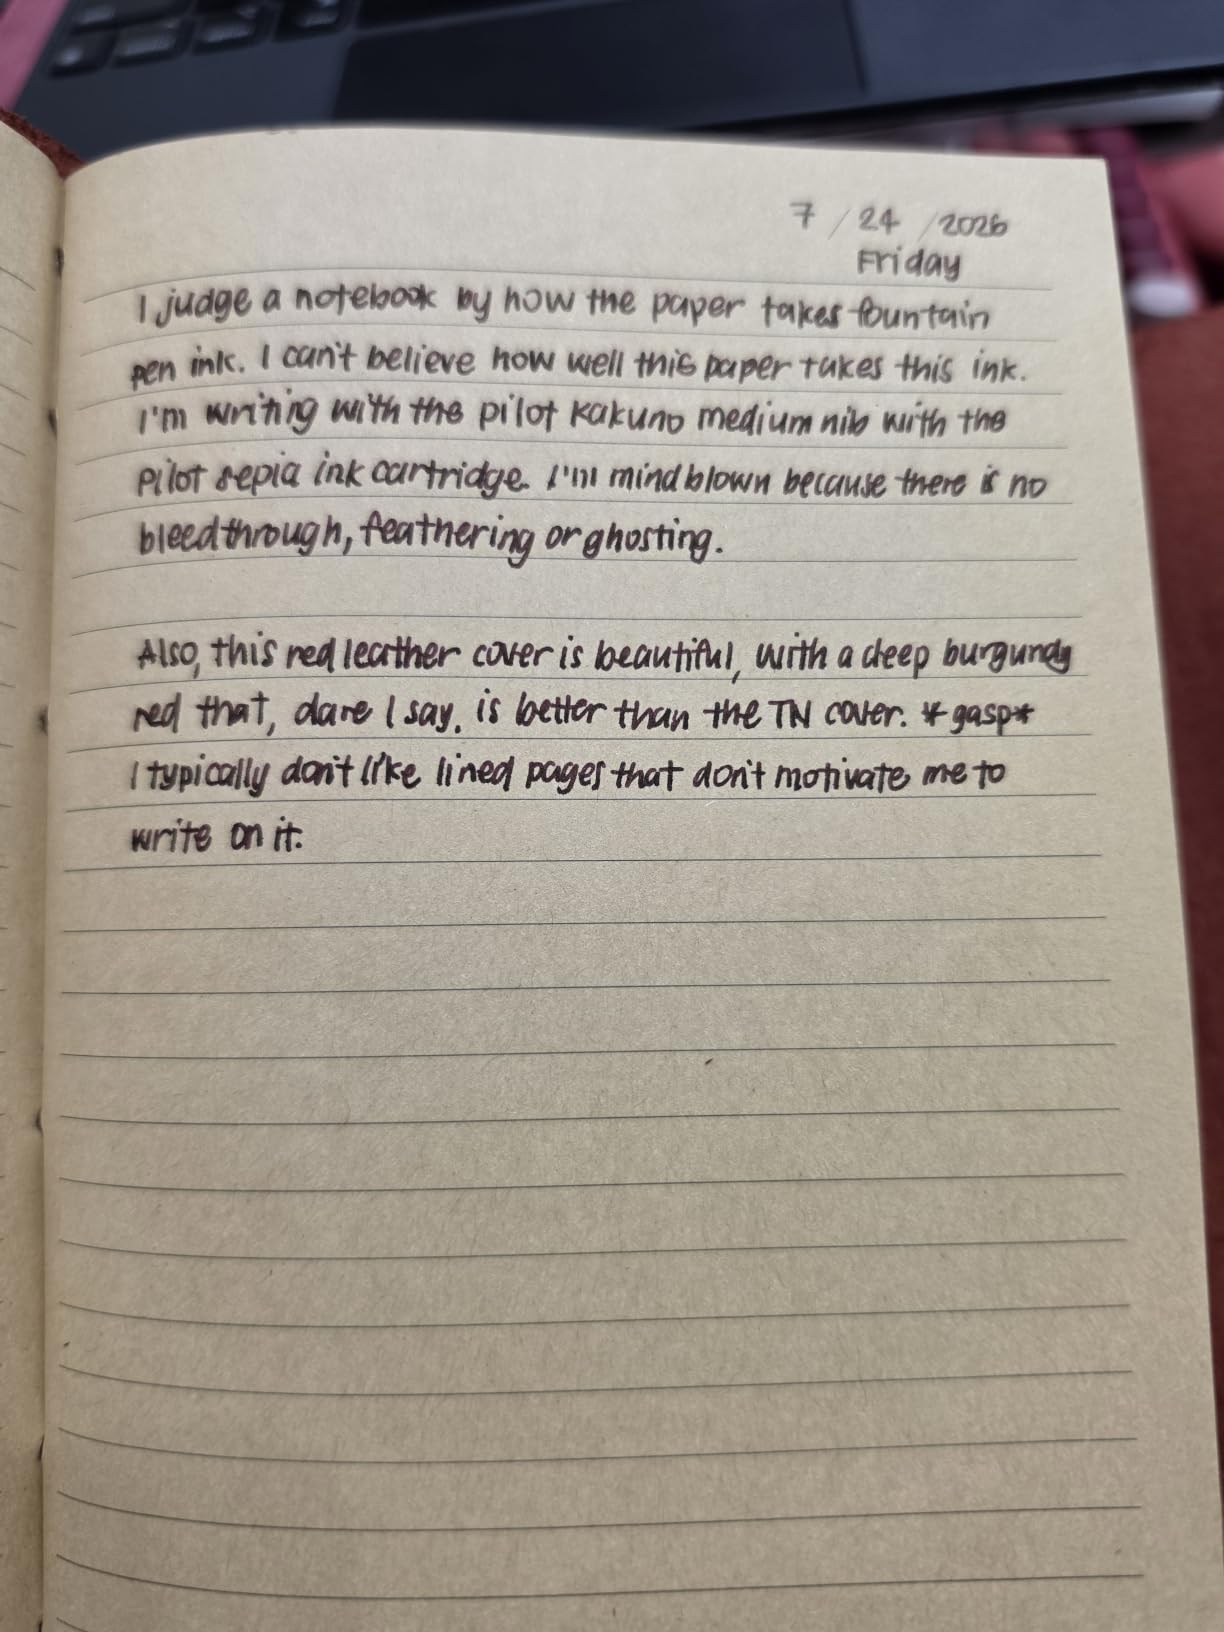 7 / 24 / 2026
Friday
I judge a notebook by how the paper takes fountain
pen ink. I can't believe how well this paper takes this ink.
I'm writing with the pilot Kakuno medium nib with the
Pilot sepia ink cartridge. I'm mindblown because there is no
bleedthrough, feathering or ghosting.
Also, this red leather cover is beautiful, with a deep burgundy
red that, dare I say, is better than the TN cover. *gasp*
I typically don't like lined pages that don't motivate me to
write on it.